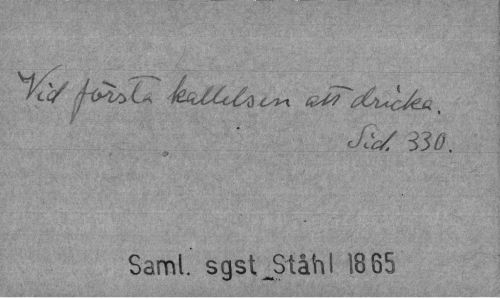 Vid första kallelsen att dricka.
Sid. 330.
Saml. sgst Ståhl 1865